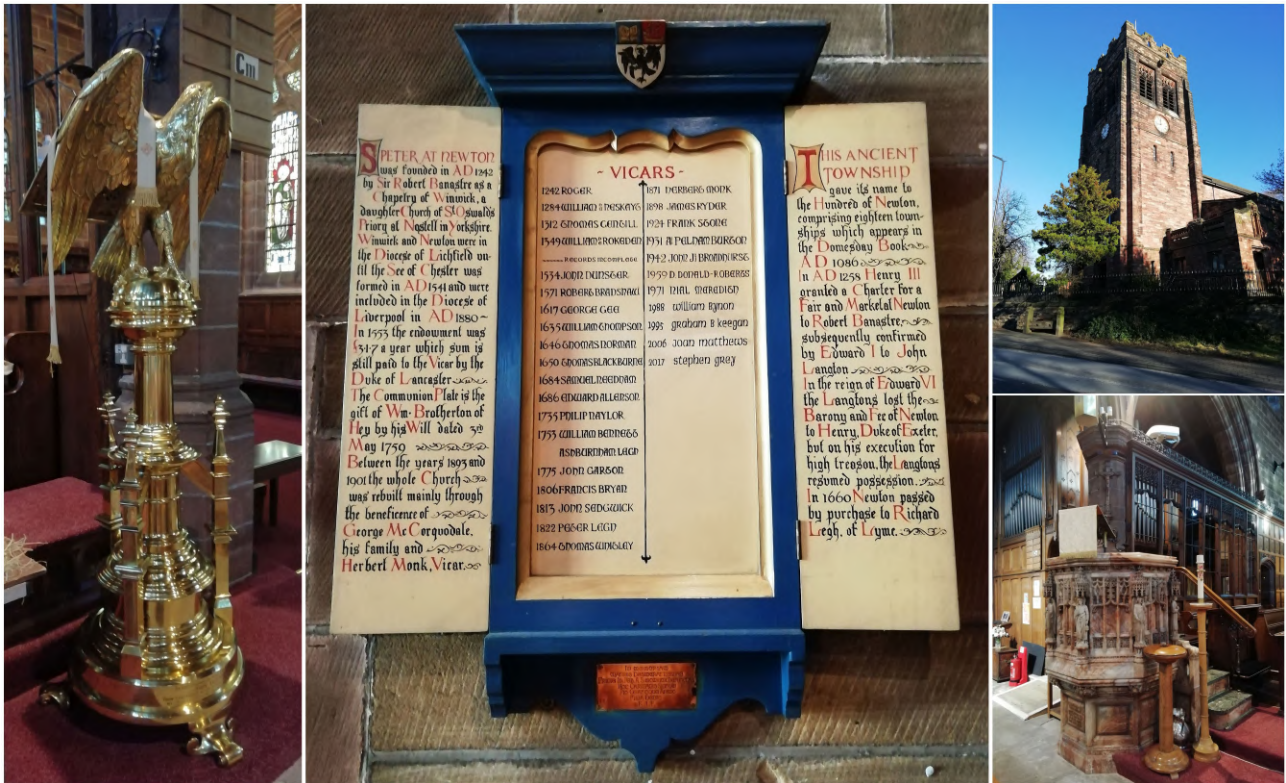 Cm
S PETER AT NEWTON
was founded in AD 1242
by Sir Robert Banastre as a
Chapelry of Winwick, a
daughter Church of St Oswald's
Priory at Nostell in Yorkshire.
Winwick and Newton were in
the Diocese of Lichfield un-
til the See of Chester was
formed in AD 1541 and were
included in the Diocese of
Liverpool in AD 1880~
In 1553 the endowment was
£3·1·7 a year which sum is
still paid to the Vicar by the
Duke of Lancaster
The Communion Plate is the
gift of Wm. Brotherton of
Hey by his Will dated 3rd
May 1759
Between the years 1893 and
1901 the whole Church
was rebuilt mainly through
the beneficence of
George McCorquodale,
his family and
Herbert Monk, Vicar.
- VICARS -
1242 ROGER
1284 WILLIAM DE NESKAYG
1312 THOMAS GENTILL
1349 WILLIAM DE ROKEDEN
RECORDS INCOMPLETE
1534 JOHN DUNSTER
1571 ROBERT BRADSHAW
1617 GEORGE GEE
1635 WILLIAM THOMPSON
1646 THOMAS NORMAN
1650 THOMAS BLACKBURNE
1684 SAMUEL NEEDHAM
1686 EDWARD ALLENSON
1735 PHILIP NAYLOR
1753 WILLIAM BENNETT
ASHBURNHAM LEGH
1775 JOHN GARTON
1806 FRANCIS BRYAN
1813 JOHN SEDGWICK
1822 PETER LEGH
1864 THOMAS WHITLEY
1871 HERBERT MONK
1898 JAMES RYDER
1924 FRANK STONE
1931 A. PELHAM BURTON
1942 JOHN H BROADHURST
1959 D. DONALD-ROBERTS
1971 NIAL MEREDITH
1988 william tynon
1995 graham b keegan
2006 joan matthews
2017 stephen grey
THIS ANCIENT
TOWNSHIP
gave its name to
the Hundred of Newton,
comprising eighteen town-
ships which appears in
the Domesday Book
AD 1086
In AD 1258 Henry III
granted a Charter for a
Fair and Market at Newton
to Robert Banastre,
subsequently confirmed
by Edward I to John
Langton
In the reign of Edward VI
the Langtons lost the
Barony and Fee of Newton
to Henry, Duke of Exeter,
but on his execution for
high treason, the Langtons
resumed possession.
In 1660 Newton passed
by purchase to Richard
Legh, of Lyme.